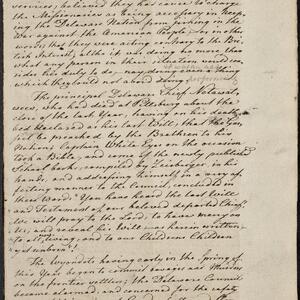 services, believed they has cause to charge
the Missionaries as being necessary in keep-
ing the Delaware Nation from joining in the
War against the American People for in other
words that they were acting contrary to the Bri-
tish Interest, altho it was done no more than
that any person in their situation would con-
sider his duty to do, nay, even even a thing
which they could not avoid doing
The principal Delaware Chief Netawat-
wees, who had died at Pittsburg about the
close of the last Year, having on his death
bed declared as his last Will, that the Gos-
pel be preached by the Brethren to his
Nation: Captain White Eyes on the occasion
took a Bible, and some of the newly published
School books, compiled by Zeisberger, in his
hand, and addressing himself in a very af-
fecting manner to the Council, concluded in
these Words: You have heard the last Will
and Testament of our beloved departed Chief,
We will pray to the Lord, to have mercy on
Us, and reveal his Will as herein written,
to all living, and to our Childrens Children
yet unborn!
The Wyondots having early in the spring of
this Year began to commit ravages and Murders
on the frontier settlers; the Delaware Council
became alarmed, and concerned for the safety